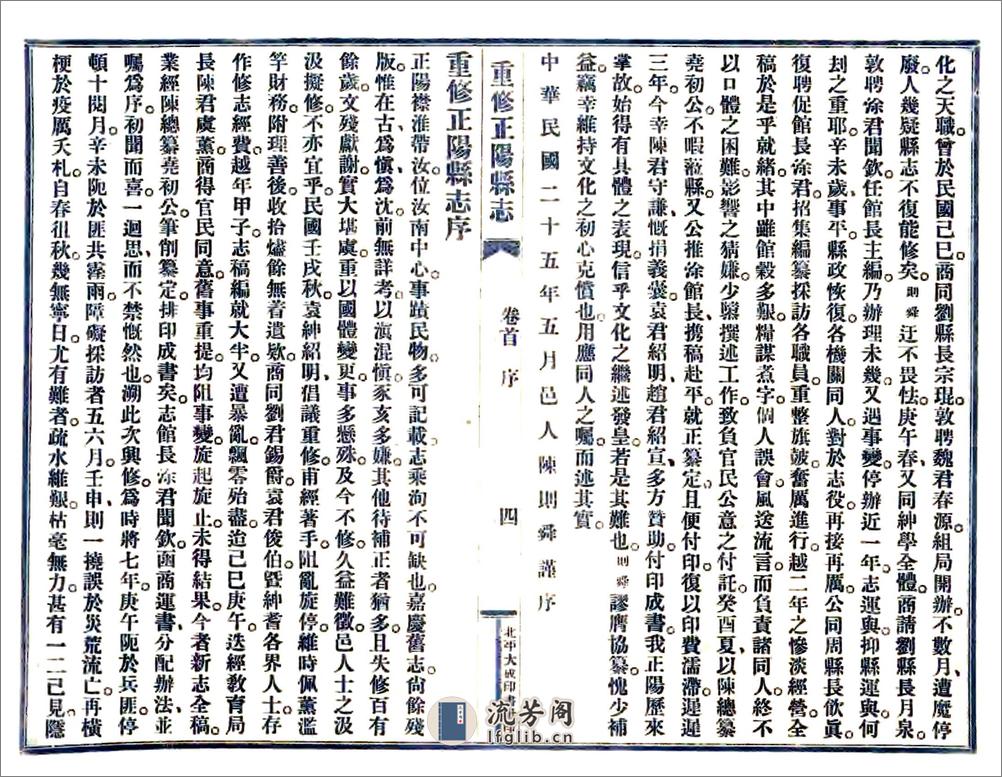 化之天職曾於民國己巳商同劉縣長宗琨敦聘魏君春源組局開辦不數月遭魔停
廢人幾疑縣志不復能修矣則舜迂不畏怯庚午春又同紳學全體商請劉縣長月泉
敦聘徐君聞欽任館長主編乃辦理未幾又遇事變停辦近一年志運與抑縣運與何
刦之重耶辛未歲事平縣政恢復各機關同人對於志役再接再厲公同周縣長伙眞
復聘促館長徐君招集編纂採訪各職員重整旗皷奮厲進行越二年之慘淡經營全
稿於是乎就緒其中雖館穀多艱糧謀煮字個人誤會風送流言而負責諸同人終不
以口體之困難影響之猜嫌少隳撰述工作致負官民公意之付託癸酉夏以陳總纂
堯初公不暇蒞縣又公推徐館長携稿赴平就正纂定且便付印復以印費濡滯遲遲
三年今幸陳君守謙慨捐義囊袁君紹明趙君紹宣多方贊助付印成書我正陽歷來
掌故始得有具體之表現信乎文化之繼述發皇若是其難也則舜謬膺協纂愧少補
益竊幸維持文化之初心克償也用應同人之囑而述其實
中華民國二十五年五月邑人陳則舜謹序
重修正陽縣志
卷首 序
四
北平大成印書
重修正陽縣志序
正陽襟淮帶汝位汝南中心事蹟民物多可記載志乘洵不可缺也嘉慶舊志尙餘殘
版惟在古爲愼爲沈前無詳考以滇混愼豕亥多嫌其他待補正者猶多且失修百有
餘歲文殘獻謝實大堪虞重以國體變更事多懸殊及今不修久益難徵邑人士之汲
汲擬修不亦宜乎民國壬戌秋袁紳紹明倡議重修甫經著手阻亂旋停維時佩薰濫
竽財務附理善後收拾燼餘無着遺欵商同劉君錫爵袁君俊伯曁紳耆各界人士存
作修志經費越年甲子志稿編就大半又遭暴亂飄零殆盡迨己巳庚午迭經敎育局
長陳君虞薰商得官民同意舊事重提均阻事變旋起旋止未得結果今者新志全稿
業經陳總纂堯初公筆削纂定排印成書矣志館長涂君聞欽函商運書分配辦法並
囑爲序初聞而喜一迴思而不禁慨然也溯此次興修爲時將七年庚午阨於兵匪停
頓十閱月辛未阨於匪共霪雨障礙採訪者五六月壬申則一撓誤於災荒流亡再橫
梗於疫厲夭札自春徂秋幾無寧日尤有難者疏水維艱枯毫無力甚有一二己見隱
流芳阁
lfglib.cn